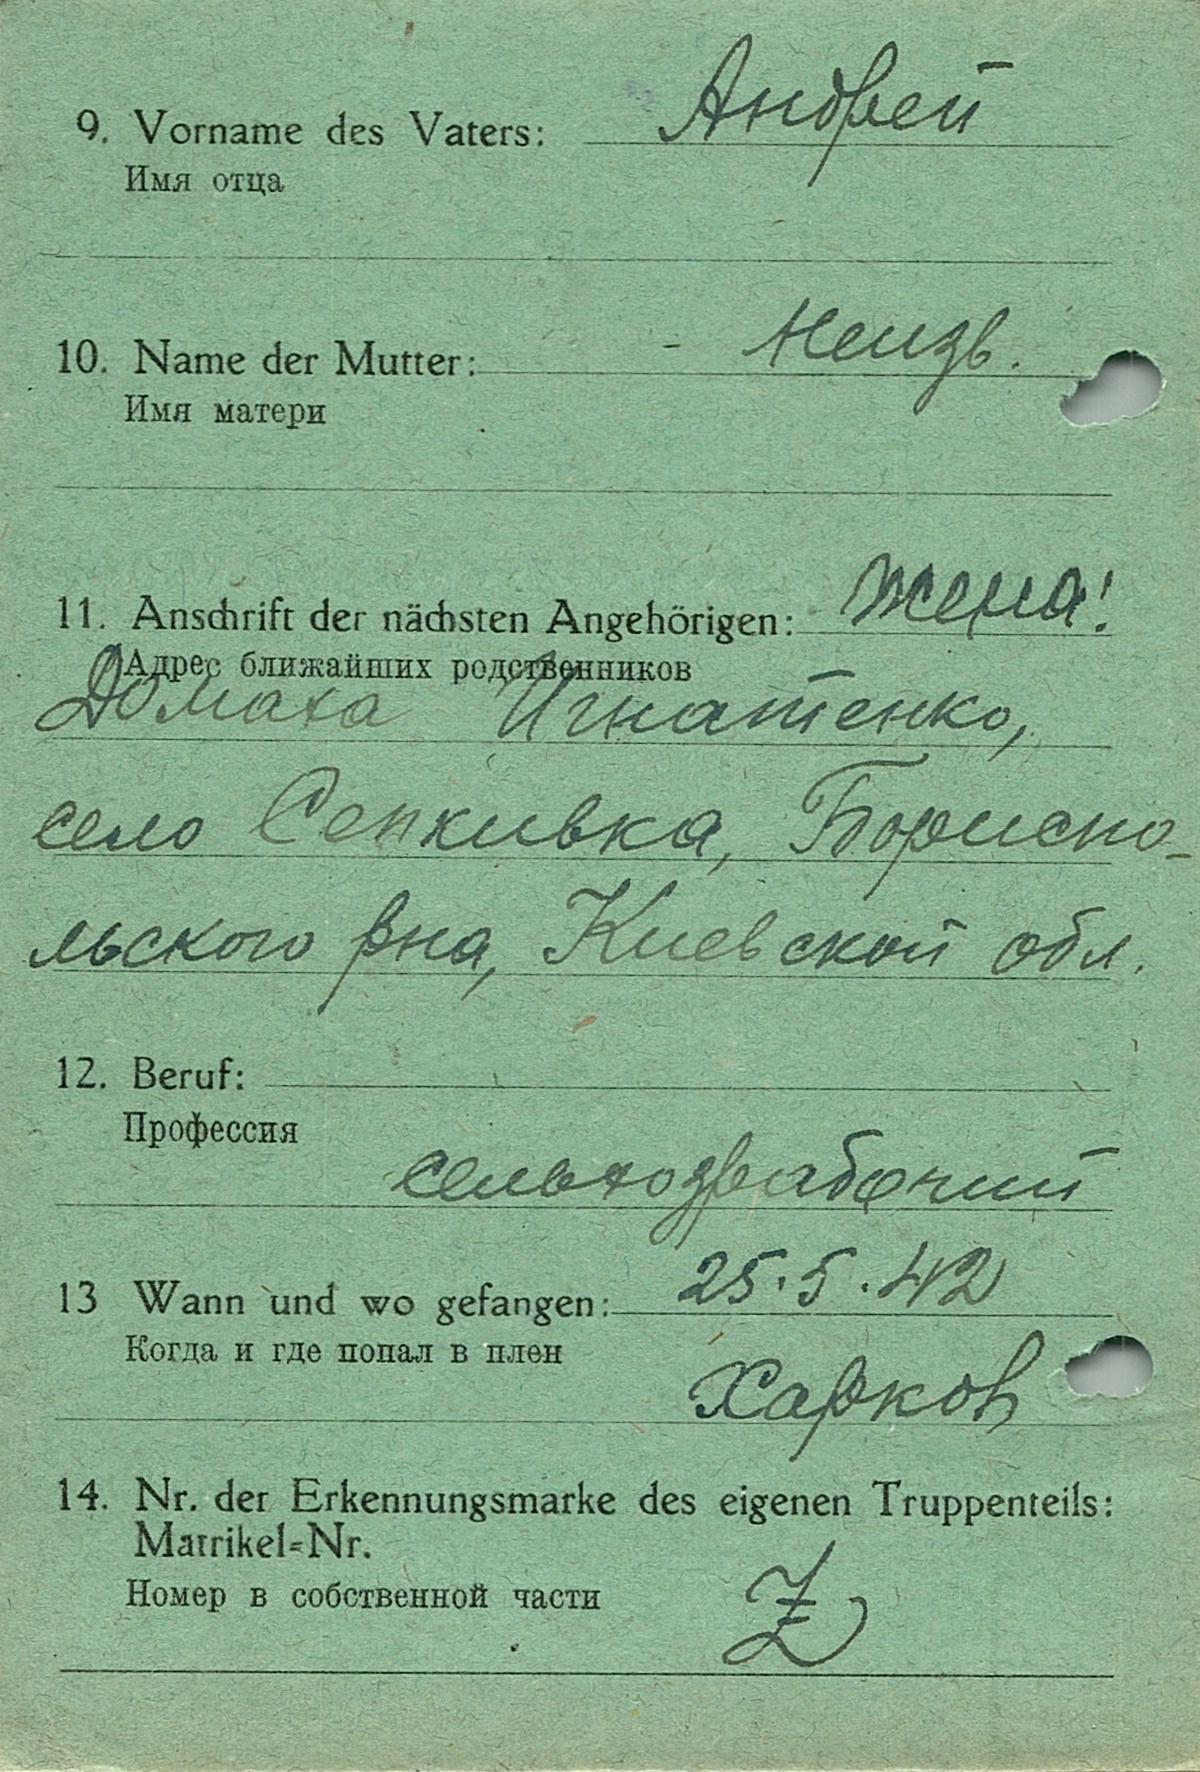 9. Vorname des Vaters: Андрей
Имя отца
10. Name der Mutter: - Неизв.
Имя матери
11. Anschrift der nächsten Angehörigen: Жена!
Адрес ближайших родственников
Домаха Игнатенко,
село Сенкивка, Бориспо-
льского рна, Киевской обл.
12. Beruf:
Профессия
сельхозрабочий
13 Wann und wo gefangen: 25.5.42
Когда и где попал в плен
Харков
14. Nr. der Erkennungsmarke des eigenen Truppenteils:
Matrikel=Nr.
Номер в собственной части